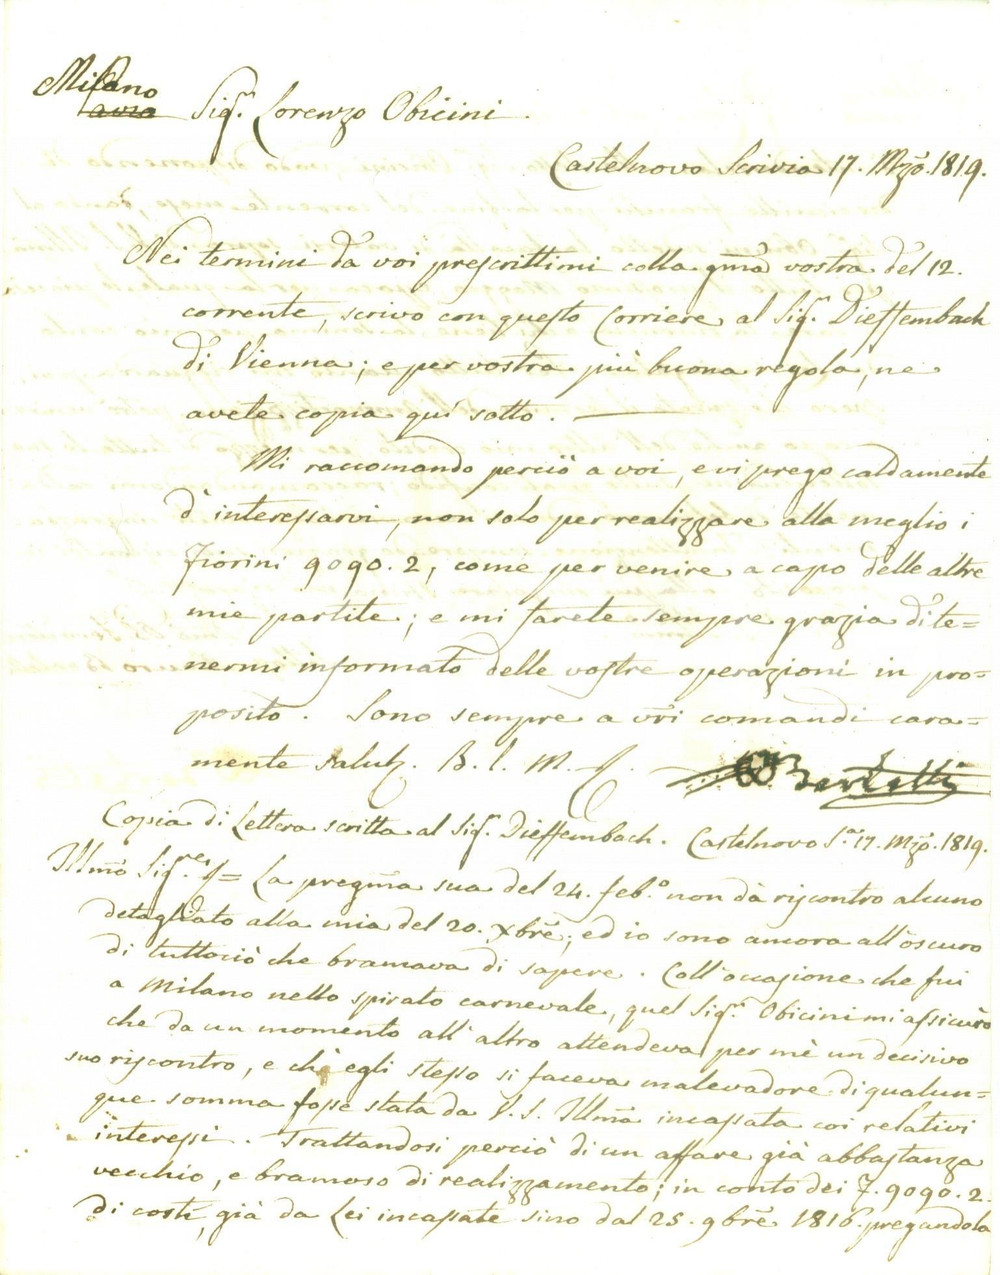 Milano
Sig.r Lorenzo Obicini.
Castelnovo Scrivia 17. Mzo. 1819.
Nei termini da voi prescrittimi colla gma vostra del 12.
corrente, scrivo con questo Corriere al Sig.r Dieffembach
di Vienna; e per vostra più buona regola, ne
avete copia quì sotto.
Mi raccomando perciò a voi, e vi prego caldamente
d'interessarvi, non solo per realizzare alla meglio i
Fiorini 9090.2, come per venire a capo delle altre
mie partite; e mi farete sempre grazia di te=
nermi informato delle vostre operazioni in pro=
posito. Sono sempre a vri comandi cara=
mente salut. B. l. M.
Bertelli
Copia di Lettera scritta al Sig.r Dieffembach. Castelnovo S.a 17. Mzo. 1819.
Illmo Sig.re = La pregma sua del 24. feb.o non dà riscontro alcuno
detagliato alla mia del 20. Xbre; ed io sono ancora all'oscuro
di tuttociò che bramava di sapere. Coll'occasione che fui
a Milano nello spirato carnevale, quel Sig.r Obicini mi assicurò
che da un momento all'altro attendeva per mè un decisivo
suo riscontro, e chè egli stesso si faceva malevadore di qualun=
que somma fosse stata da V. S. Illma incassata coi relativi
interessi. Trattandosi perciò di un affare già abbastanza
vecchio, e bramoso di realizzamento; in conto dei F. 9090.2.
di costì, già da Lei incassate sino dal 25. 9bre 1816. pregandola